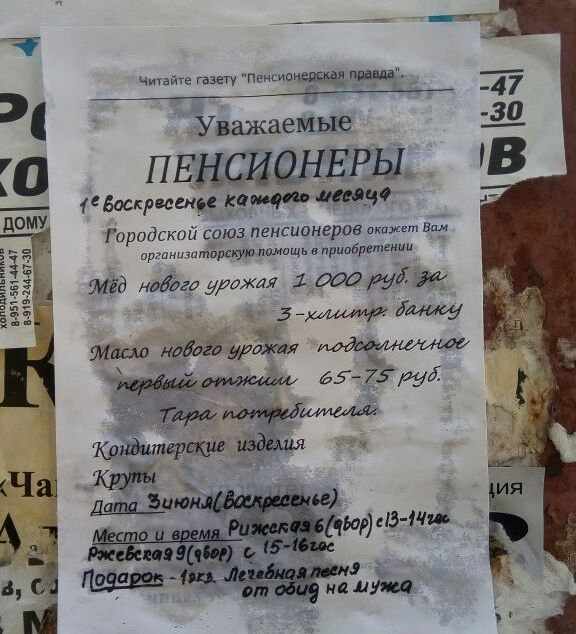 Читайте газету "Пенсионерская правда".
Уважаемые
ПЕНСИОНЕРЫ
1е Воскресенье каждого месяца
Городской союз пенсионеров окажет Вам
организаторскую помощь в приобретении
Мёд нового урожая 1 000 руб. за
3-хлитр. банку
Масло нового урожая подсолнечное
первый отжим 65-75 руб.
Тара потребителя.
Кондитерские изделия
Крупы
Дата 3 июня (Воскресенье)
Место и время Рижская 6 (двор) с 13-14 час
Ржевская 9 (двор) с 15-16 час
Подарок - 1 экз. Лечебная песня
от обид на мужа
-47
-30
ОВ
ДОМУ
холодильников
8-951-561-44-47
8-919-244-67-30
«Ча
ция